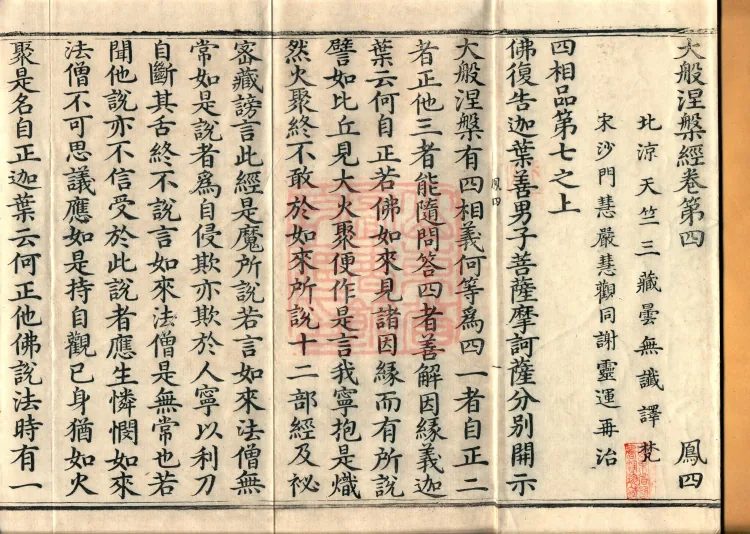 大般涅槃經卷第四 鳳四
北涼天竺三藏曇無讖譯梵
宋沙門慧嚴慧觀同謝靈運再治
四相品第七之上
佛復告迦葉善男子菩薩摩訶薩分別開示
鳳四
大般涅槃有四相義何等爲四一者自正二
者正他三者能隨問答四者善解因緣義迦
葉云何自正若佛如來見諸因緣而有所說
譬如比丘見大火聚便作是言我寧抱是熾
然火聚終不敢於如來所說十二部經及祕
密藏謗言此經是魔所說若言如來法僧無
常如是說者爲自侵欺亦欺於人寧以利刀
自斷其舌終不說言如來法僧是無常也若
聞他說亦不信受於此說者應生憐憫如來
法僧不可思議應如是持自觀己身猶如火
聚是名自正迦葉云何正他佛說法時有一